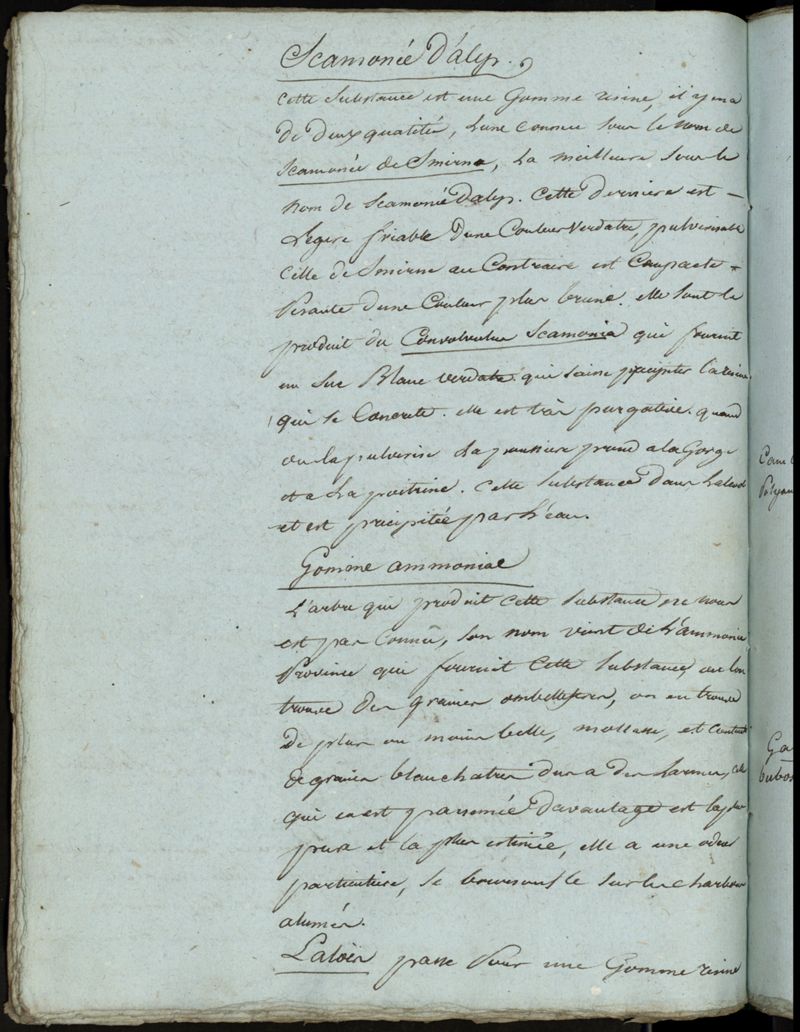 Scamonée D'alep.
Cette Substance est une Gomme résine, il y en a
de deux qualités, l'une connue sous le nom de
Scamonée de Smirne, la meilleure, sous le
nom de Scamonée D'alep. Cette derniere est
Légere friable d'une Couleur verdatre, pulverisable
Celle de Smirne au Contraire est Compacte
Pesante d'une Couleur plus brune. elle sont le
produit du Convolvulus Scamonia qui fournit
un Suc Blanc verdatre qui laisse précipiter la résine
qui se Concrete. elle est très purgative. quand
on la pulverise la poussiere prend a la Gorge
et a la poitrine. Cette Substance dans l'alcool
et est précipitée par l'eau.
Gomme ammoniac
L'arbre qui produit Cette Substance ne nous
est pas Connu, son nom vient de l'ammonie
Province qui fournit Cette Substance, ou l'on
trouve des graines ombelliferes, on en trouve
De plus ou moins belle, mollasse, et contient
de graines blanchatres dur a des Larmes, celle
qui en est parsemée davantage est la plus
pure et la plus estimée, elle a une odeur
particuliere, se boursoufle sur les charbons
alumés.
L'aloès passe Pour une Gomme résine
Ga